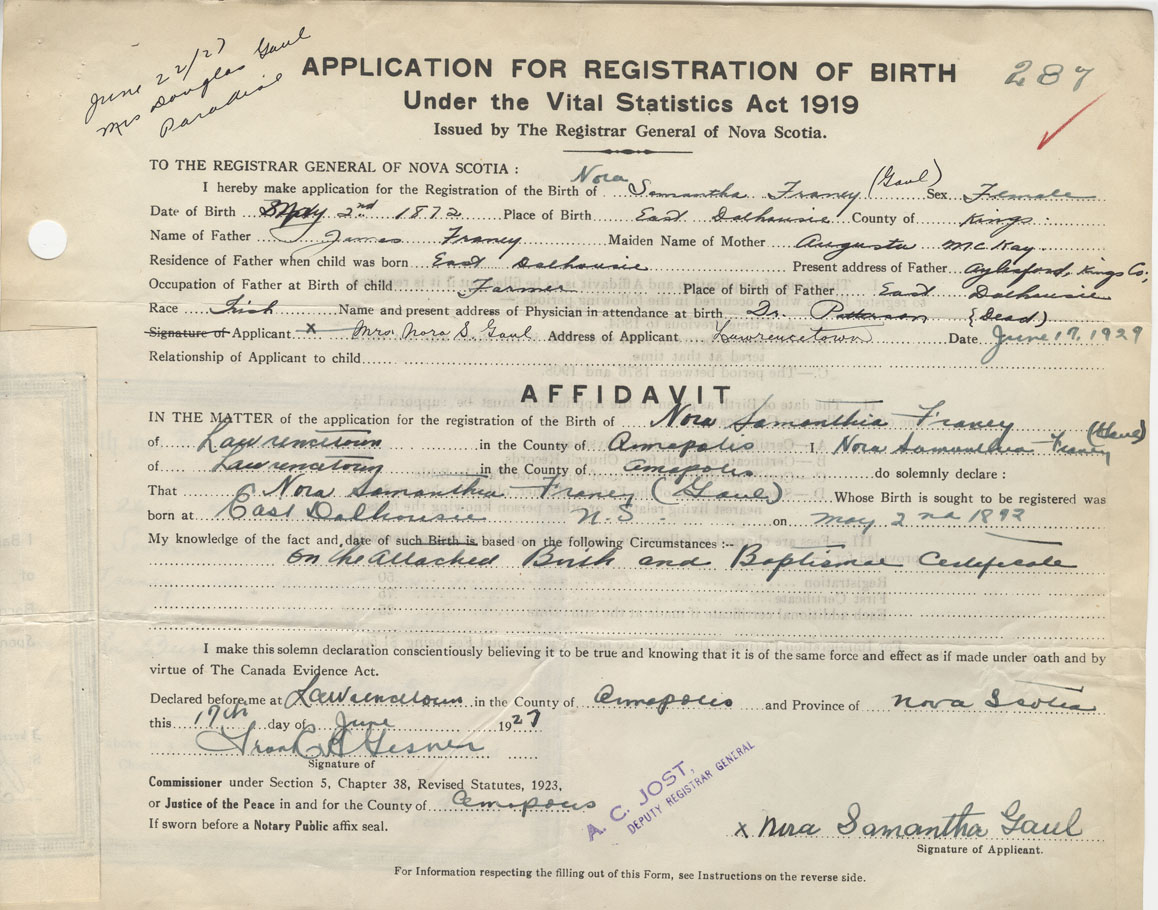 June 22/27
Mrs Douglas Gaul
Paradise
APPLICATION FOR REGISTRATION OF BIRTH 287
Under the Vital Statistics Act 1919
Issued by The Registrar General of Nova Scotia.
TO THE REGISTRAR GENERAL OF NOVA SCOTIA :
I hereby make application for the Registration of the Birth of Nora Samantha Franey (Gaul) Sex Female
Date of Birth May 2nd 1872 Place of Birth East Dalhousie County of Kings.
Name of Father James Franey Maiden Name of Mother Augusta McKay.
Residence of Father when child was born East Dalhousie Present address of Father Aylesford, Kings Co;
Occupation of Father at Birth of child. Farmer Place of birth of Father East Dalhousie
Race Irish Name and present address of Physician in attendance at birth Dr. Patterson (Dead)
Signature of Applicant x Mrs. Nora S. Gaul Address of Applicant Lawrencetown Date June 17, 1929
Relationship of Applicant to child
AFFIDAVIT
IN THE MATTER of the application for the registration of the Birth of Nora Samanthia Franey
of Lawrencetown in the County of Annapolis I Nora Samanthia Franey
of Lawrencetown in the County of Annapolis do solemnly declare :
That Nora Samanthia Franey (Gaul) Whose Birth is sought to be registered was
born at East Dalhousie N.S. on May 2nd 1892
My knowledge of the fact and date of such Birth is based on the following Circumstances :--
on the attached Birth and Baptismal Certificate
I make this solemn declaration conscientiously believing it to be true and knowing that it is of the same force and effect as if made under oath and by
virtue of The Canada Evidence Act.
Declared before me at Lawrencetown in the County of Annapolis and Province of Nova Scotia
this 17th day of June 1927
Gesner
Signature of
Commissioner under Section 5, Chapter 38, Revised Statutes, 1923,
or Justice of the Peace in and for the County of Annapolis
If sworn before a Notary Public affix seal.
A. C. JOST,
DEPUTY REGISTRAR GENERAL
x Nora Samantha Gaul
Signature of Applicant.
For Information respecting the filling out of this Form, see Instructions on the reverse side.